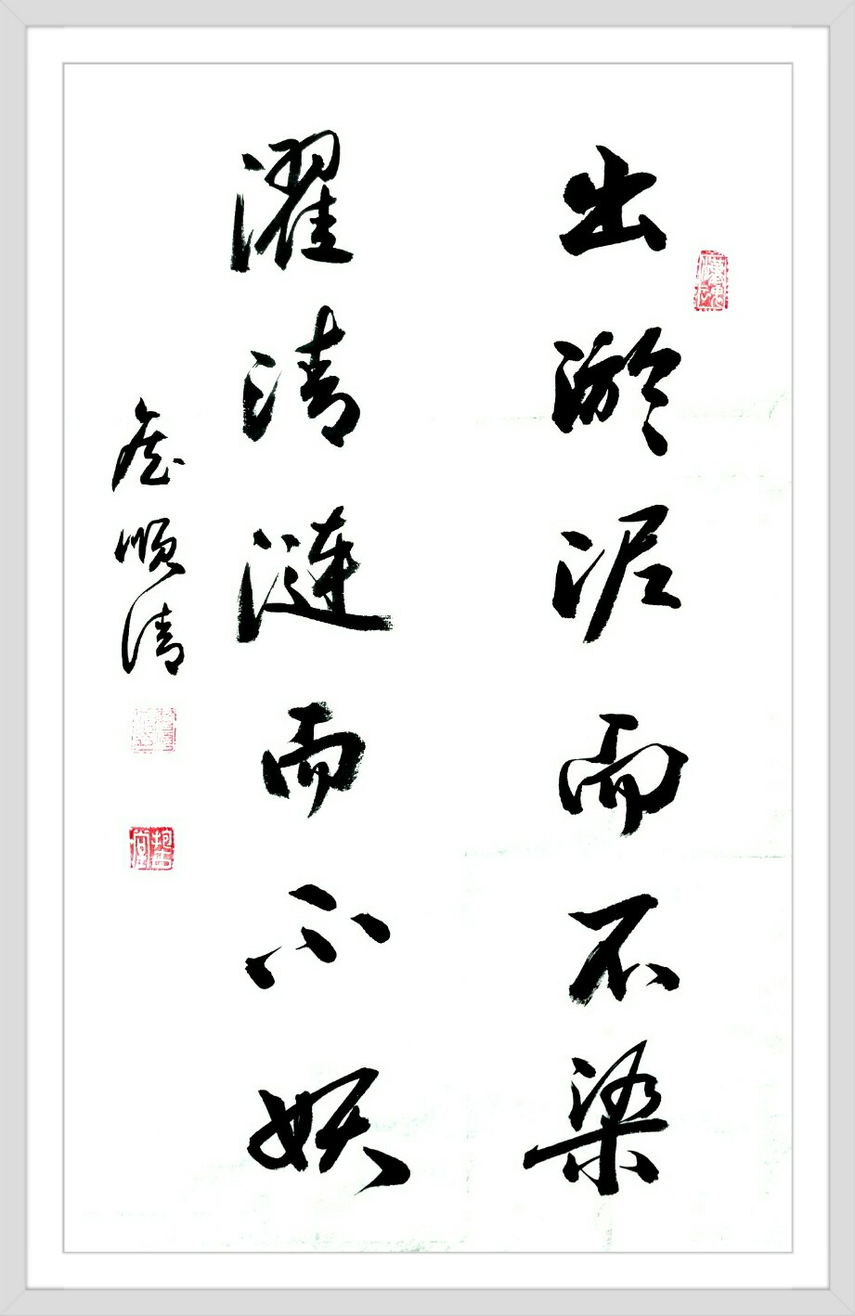 出淤泥而不染
濯清漣而不妖
詹顺清